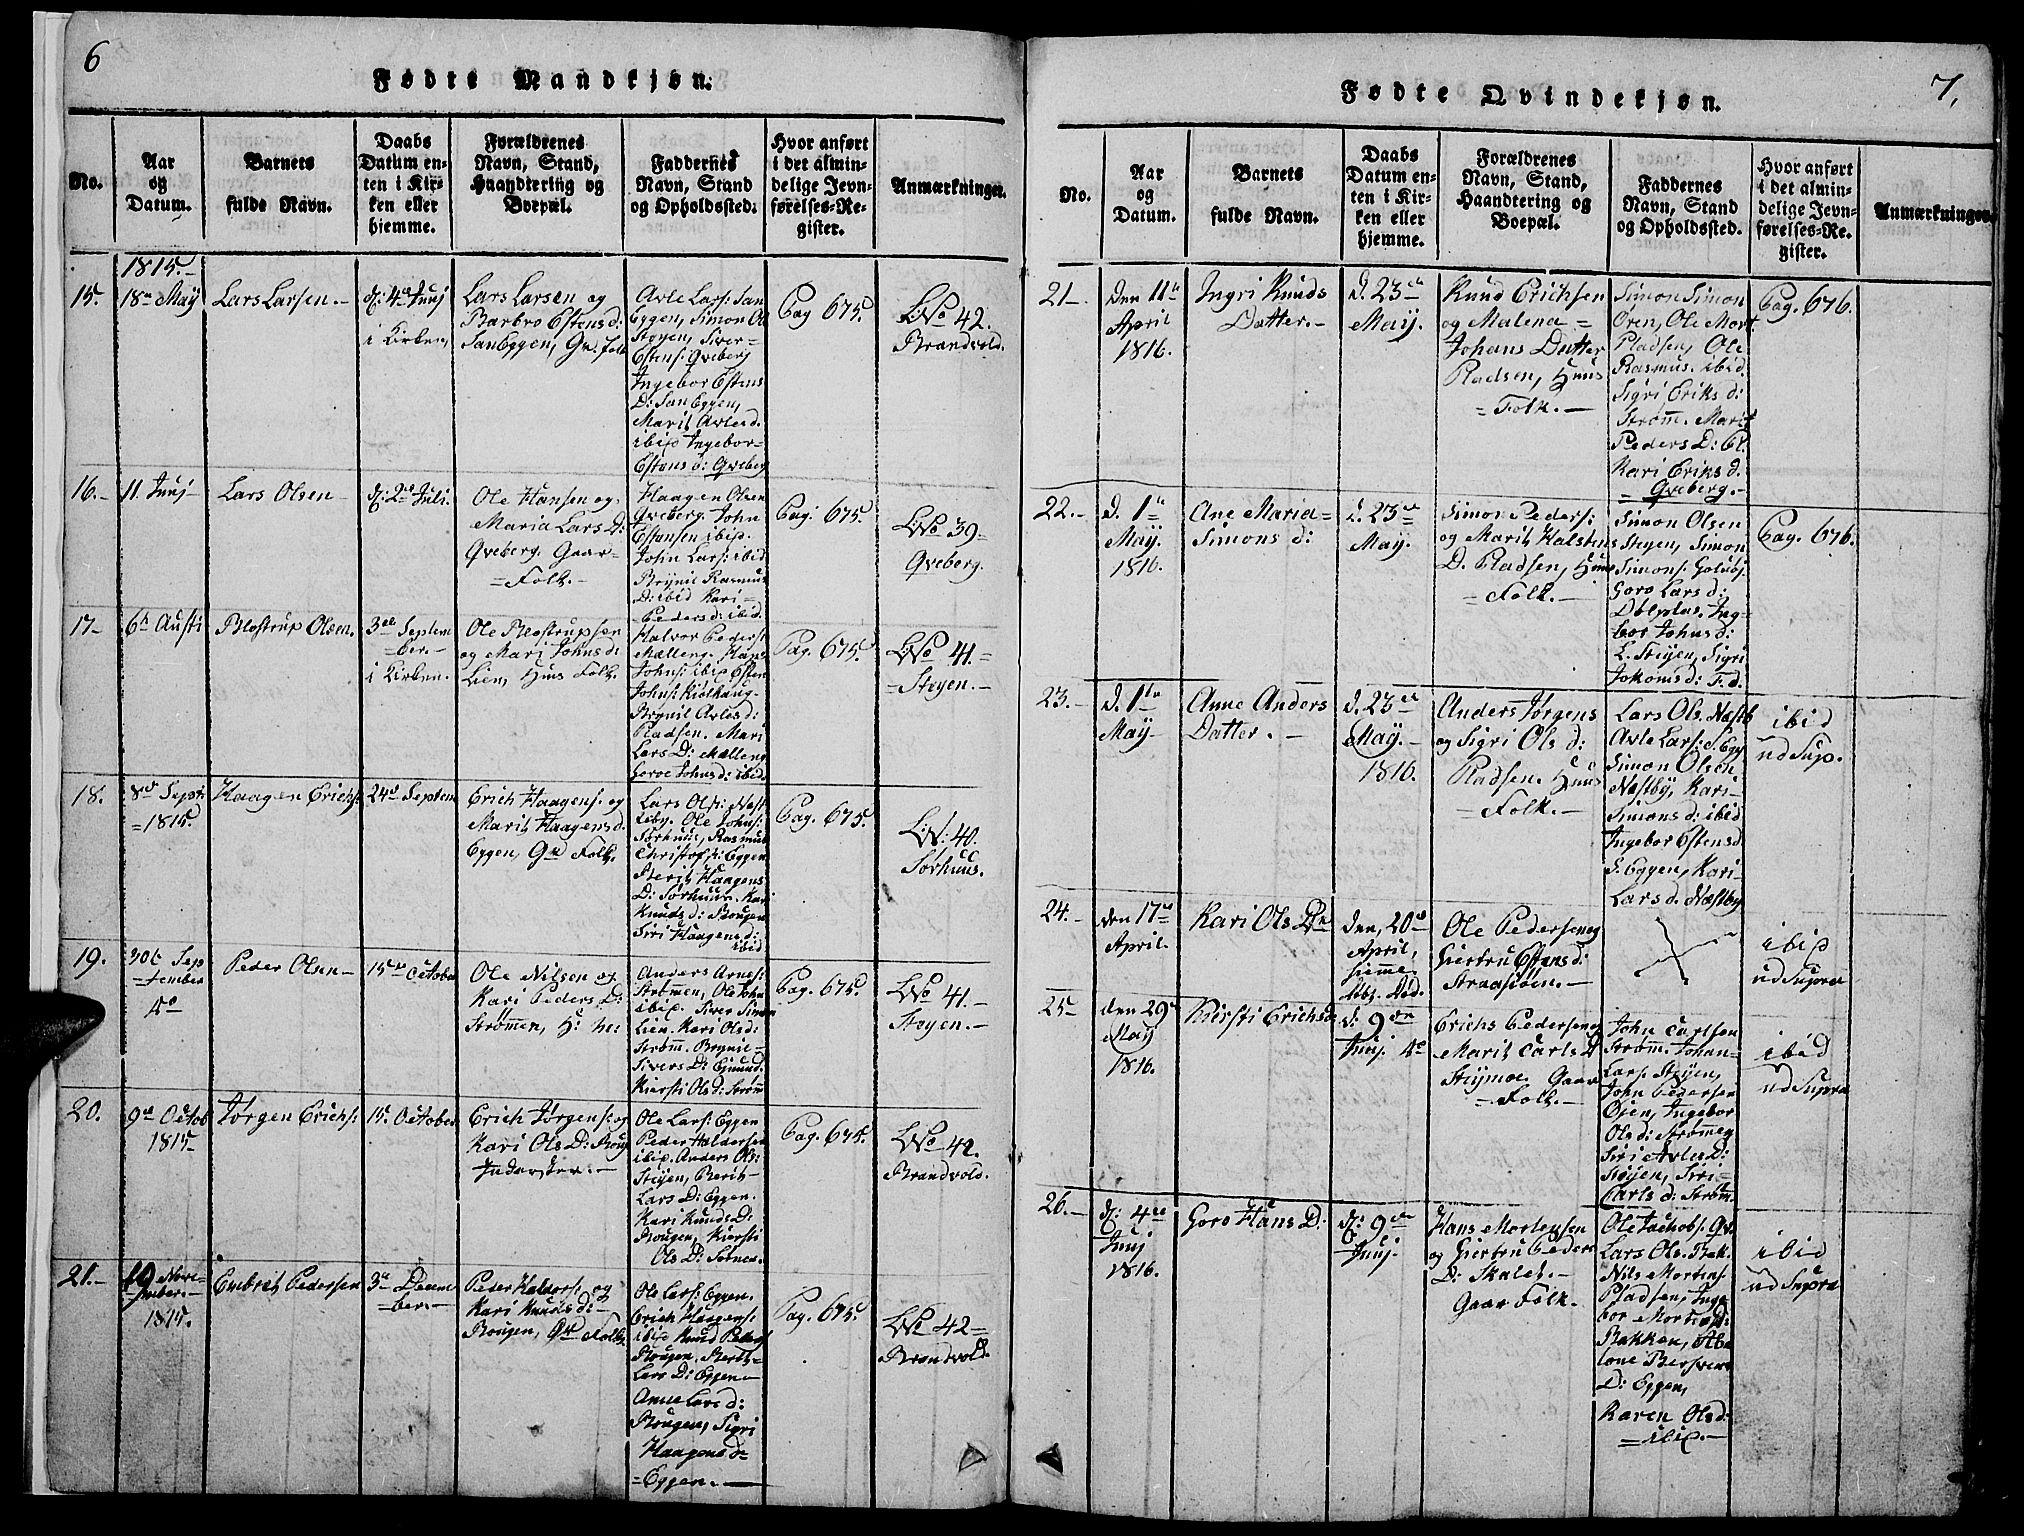 6
Fødte Mandkjøn.
No.
Aar
og
Datum.
Barnets
fulde Navn.
Daabs
Datum en-
ten i Kir-
ken eller
hjemme.
Forældrenes
Navn, Stand,
Haandtering og
Boepæl.
Faddernes
Navn, Stand
og Opholdssted.
Hvor anført
i det almin-
delige Jevn-
førelses-Re-
gister.
Anmærkninger.
1815.
15.
18de May
Lars Larsen.
d: 4de Junj
i Kirken,
Lars Larsen og
Barbro Estens d:
SanEggen, Gd. Folk
Avle Lars: San
Eggen, Simon Ol
Støyen, Siver
Estens: Qveberg
Ingebor Estens
D: SanEggen,
Marit Avles d.
ibid Ingebor
Estens d: Qveberg
Pag 675.
LNo 42.
Brandvold.
16.
11. Junj
Lars Olsen
d: 2de Juli.
Ole Hansen og
Maria Lars D:
Qveberg. Gaar=
=Folk.
Haagen Olsen
Qveberg. John
Estensen ibid.
John Lars: ibid
Brynil Rasmus
D: ibid Kari
Peders d: ibid.
Pag: 675.
LNo 39=
Qveberg.
17
6te Austi
Blostrup Olsen.
3de Septem
=ber.
i Kirken.
Ole Blostrupsen
og Mari Johns d:
Lien, Huus Folk.
Halvor Peders:
Mælleng. Hans
Johns: ibid Esten
Johns: Kiølhaug
Brynil Avles d:
Pladsen. Mari
Lars D: Mælleng
Goroe Johns d: ibid.
Pag. 675.
LNo 41.=
=Støyen.
18.
8de Septr
=1815.
Haagen Erichs:
24de Septem
Erich Haagens: og
Marit Haagens d.
Eggen, Gd Folk.
Lars Ols: Næst
eby. Ole Johns:
Sørhuus, Rasmus
Christoff: Eggen
Berit Haagens
D: Sørhuus. Kari
Knuds d: Bougen
Siri Haagens d:
ibid
Pag. 675.
LN: 40.
Sørhuus.
19.
30te Sep
=tember
Peder Olsen
15de October
Ole Nilsen og
Kari Peders D:
Strømmen, H: M:
Anders Arnes:
Strømmen, Ole John
ibid. Siver Simon
Lien. Kari Ols d:
Strømm. Brynil
Sivers D: Ejmund.
Kiersti Ols D: Strøm
Pag. 675.
LNo 41
Støyen.
20.
9de Octob
1815
Jørgen Erichs:
15. October
Erich Jørgens: og
Kari Ols D: Boug
Inderster.
Ole Lars: Eggen
Peder Haldorsen
ibid. Anders Ols:
Støyen, Berit
Lars D: Eggen.
Kari Knuds D:
Bougen, Kiersti
Ols D:
Pag. 675.
LNo 42.
Brandvold.
21.
19 Nove
=mber.
1815.
Embret Pedersen
3de Decem
=ber.
Peder Haldors: og
Kari Knuds d:
Bougen, Gd Folk.
Ole Lars: Eggen.
Erich Haagens:
ibid Knud Peders
Bougen. Berit
Lars D: Eggen
Anne Lars d:
Bougen, Sigri
Haagens d:
=Eggen.
Pag. 675.
LNo 42=
Brandvold.
7.
Fødte Qvindekjøn.
No.
Aar
og
Datum.
Barnets
fulde Navn.
Daabs
Datum en-
ten i Kir-
ken eller
hjemme.
Forældrenes
Navn, Stand,
Haandtering og
Boepæl.
Faddernes
Navn, Stand
og Opholdssted.
Hvor anført
i det almin-
delige Jevn-
førelses-Re-
gister.
Anmærkninger.
21
Den 11te
April
1816.
Ingri Knuds
Datter.
D. 23de
May.
Knud Erichsen
og Malena=
Johans Datter
Pladsen, Huus
=Folk.
Simon Simon
Ören, Ole Mort
Pladsen, Ole
Rasmus. ibid.
Sigri Eriks d:
Strømm. Marit
Peders D:
Kari Eriks d.
=Qveberg.
Pag. 676.
22.
D. 1te
May.
1816.
Ane Maria=
Simons d:
D. 23de
May.
Simon Peders:
og Marit Halstens
D. Pladsen, Huus
=Folk.
Simon Olsen
Støyen, Simon
Simons:
Goro Lars d:
Ing-
bor Johns d:
L. Støyen, Sigri
Pag. 676.
23.
D. 1te
May
Anne Anders
Datter.
D. 23de
May.
1816.
Anders Jørgens
og Sigri Ols d:
Pladsen. Huus
=Folk.
Lars Ols. Næstb
Avle Lars: S. Egg
Simon Olsen
Næstby, Kari
Simons d: ibid
Ingebor Estens d
S. Eggen, Kari
Lars d. Næstby
ibid
ud Sup.
24.
den 17de
April.
Kari Ols Dr
Den, 20de
April,
hiemme
Ole Pedersen og
Giertru Estens d:
Straasiøen.
ibid
ud Supra
25
den 29de
May
1816.
Kiersti Erichs d
d: 9de
Junj.
Erichs Pedersen og
Marit Carls D
Støymoe Gaar
=Folk.
John Carlsen
Strømm. Johan=
Lars: Støyen,
John Pedersen
Øien, Ingebor
Ols d: Strømmen
Siri Avles D:
Støyen, Siri
Carls d: Strøm.
ibid
ud Supra
26.
d: 4de
Junj
1816.
Goro Hans D:
d: 9de
Junj.
Hans Mortensen
og Giertru Peders
D: Skalet.
Gaar Folk.
Ole Jachobs: Qv.
Lars Ols. Bak.
Nils Mortens:
Pladsen, Inge
bor Mortens D:
Bakken,
lone
D: Eggen,
Karen Ols d:
=ibid.
ibid
ud Supra